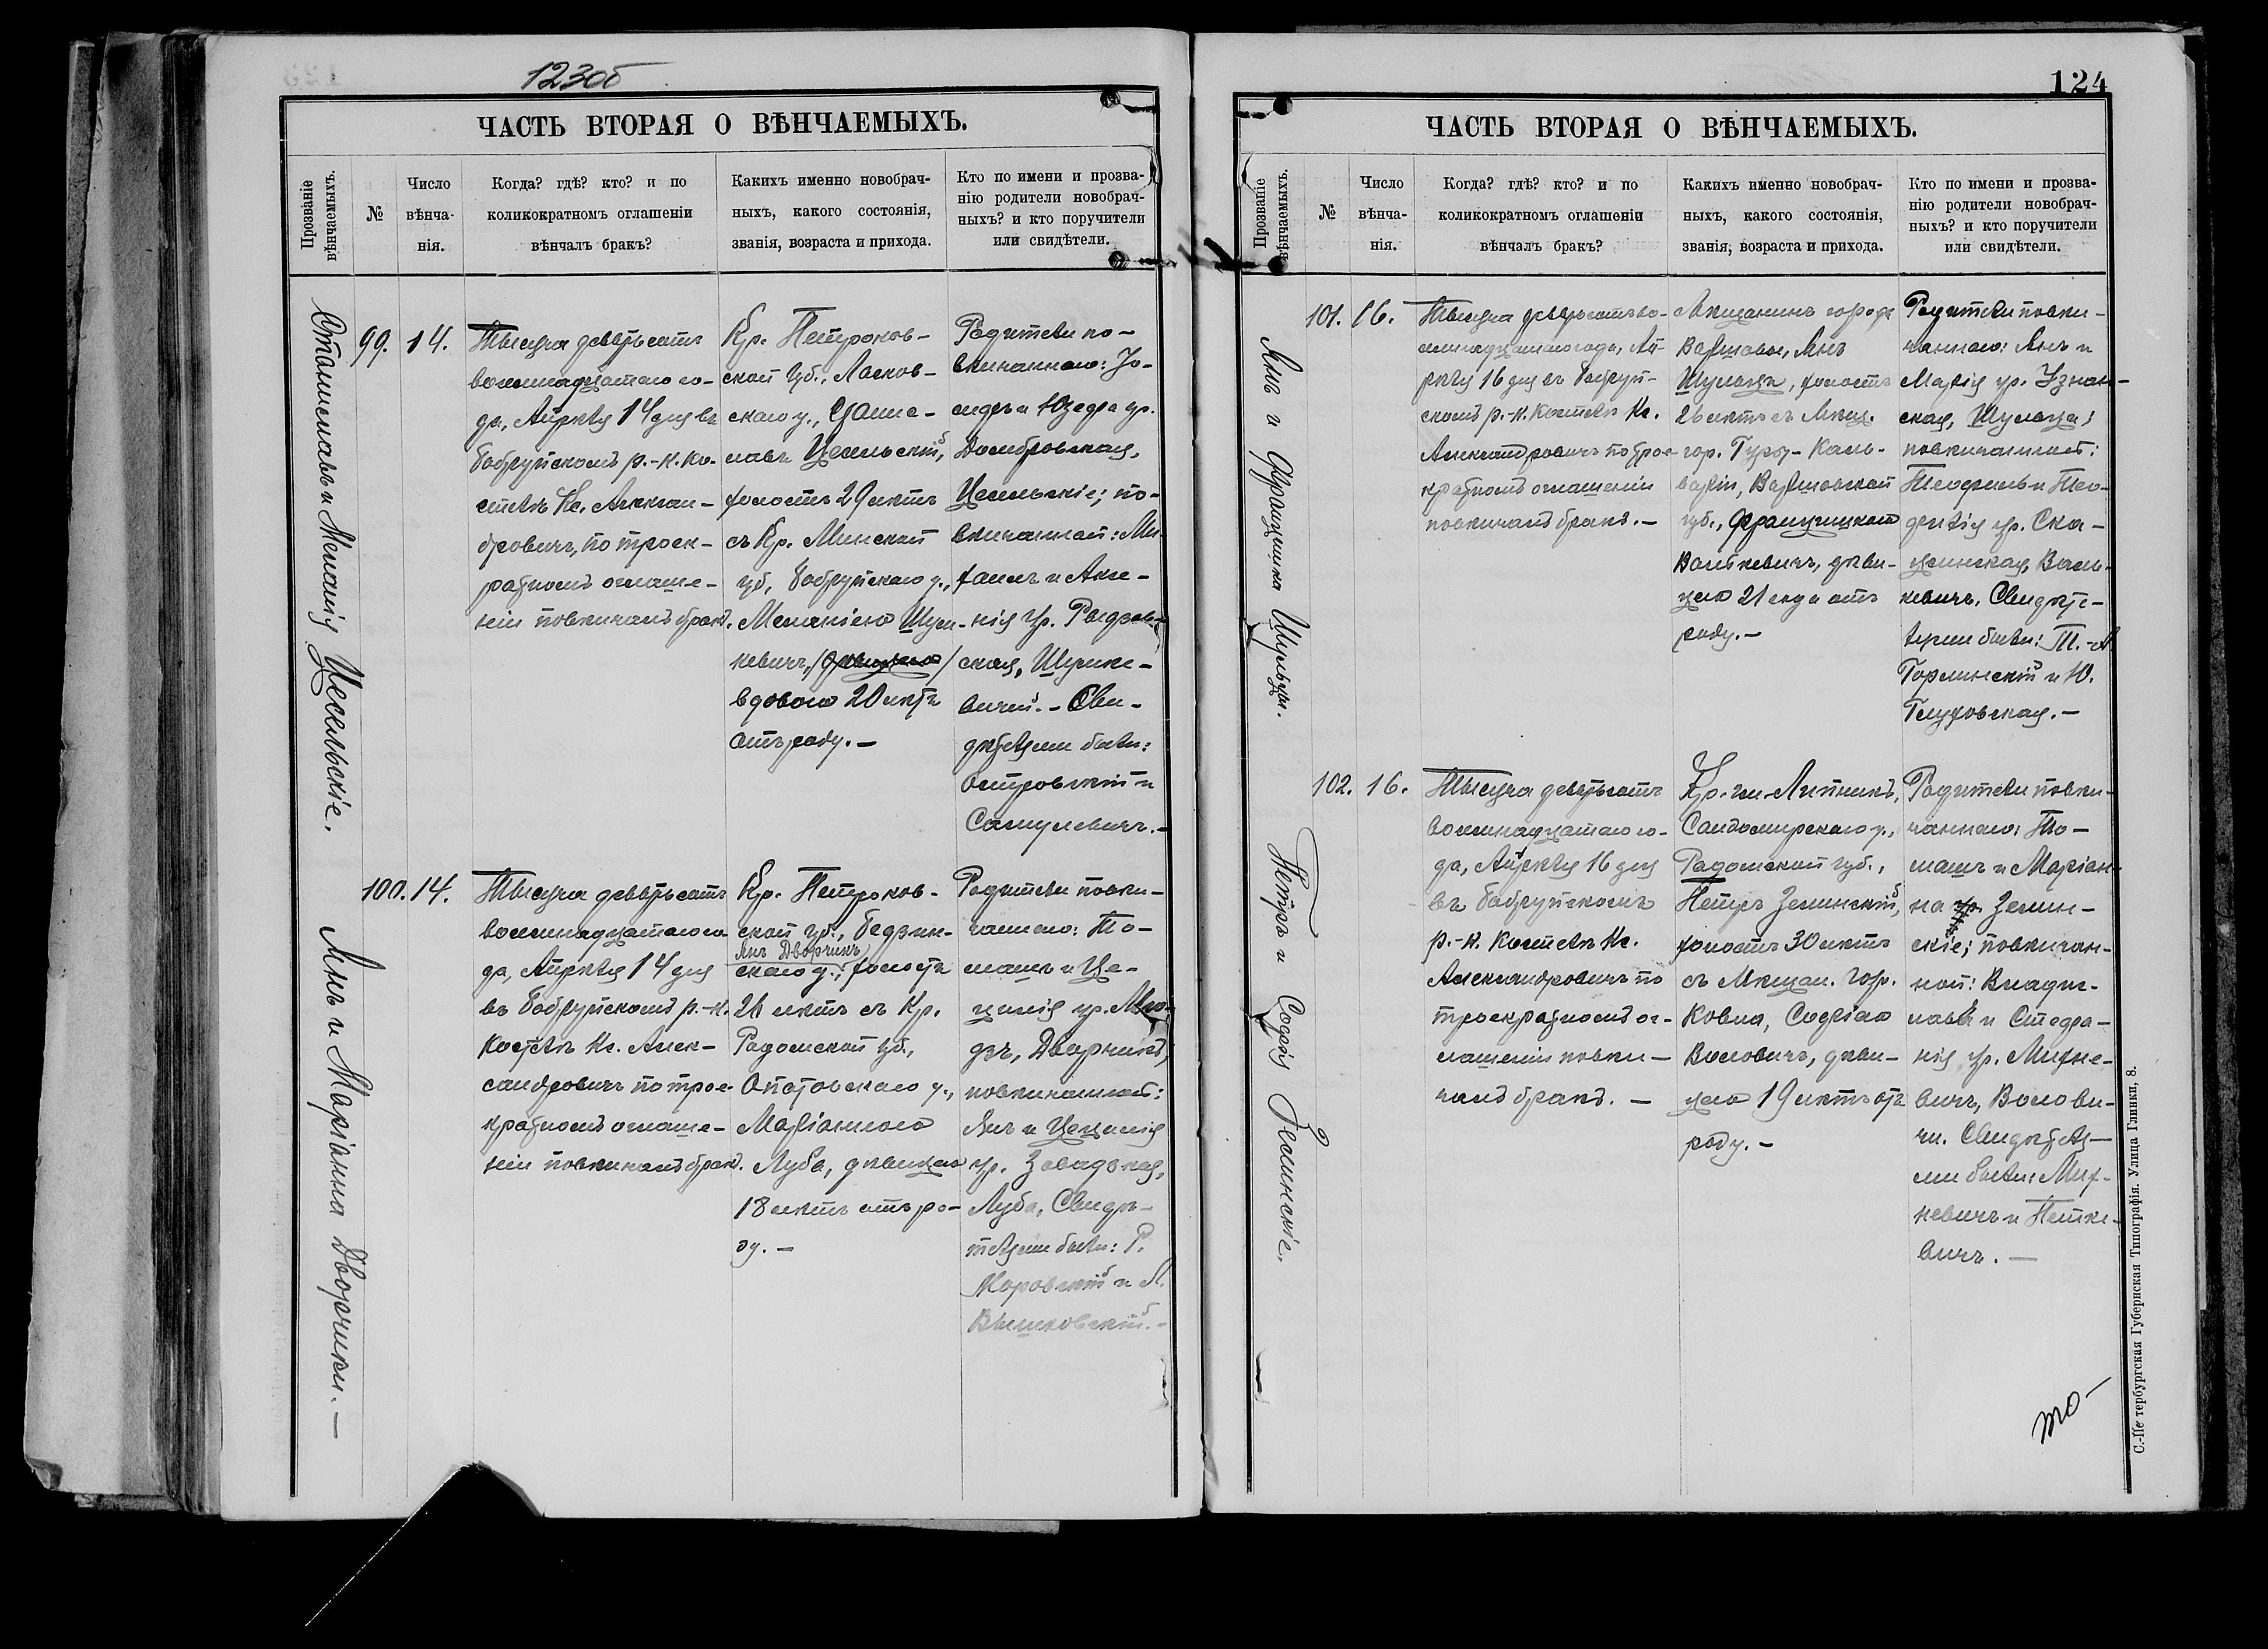 123об
ЧАСТЬ ВТОРАЯ О ВѢНЧАЕМЫХЪ.
Прозваніе
вѣнчаемыхъ.
№
Число
вѣнча-
нія.
Когда? гдѣ? кто? и по
коликократномъ оглашеніи
вѣнчалъ бракъ?
Какихъ именно новобрач-
ныхъ, какого состоянія,
званія, возраста и прихода.
Кто по имени и прозва-
нію родители новобрач-
ныхъ? и кто поручители
или свидѣтели.
Станиславъ и Меланія Цесельскіе.
99.
14.
Тысяча девятьсотъ
восемнадцатаго го-
да, Апрѣля 14 дня въ
Бобруйскомъ р.-к. ко-
стелѣ Кс. Алексан-
дровичъ, по троек-
ратномъ оглаше-
ніи повѣнчалъ бракъ.
Кр. Петроков-
ской губ., Ласков-
скаго у., Стани-
славъ Цесельскій,
холостъ 29 лѣтъ
съ Кр. Минской
губ., Бобруйскаго у.,
Меланіею
кевичъ, /дѣвицею/
вдовою 20 лѣтъ
отъ роду.—
Родители по-
вѣнчаннаго: Іо-
сифъ и Юзефа ур.
Домбровская,
Цесельскіе; по-
вѣнчанной: Ми-
хаилъ и Аксе-
нія ур.
ская,
вичи. - Сви-
дѣтелями были:
Островскій и
Самулевичъ.-
Янъ и Маріанна Дворчики.—
100.
14.
Тысяча девятьсотъ
восемнадцатаго го-
да, Апрѣля 14 дня
въ Бобруйскомъ р.-к.
костелѣ Кс. Алек-
сандровичъ по трое-
кратномъ оглаше-
ніи повѣнчалъ бракъ.
Кр. Петроков-
ской губ., Бедзин-
Янъ Дворчикъ
скаго у., холостъ
26 лѣтъ съ Кр.
Радомской губ.,
Опатовскаго у.,
Маріанною
Луба, дѣвицею
18 лѣтъ отъ ро-
ду.—
Родители повѣн-
чаннаго: То-
машъ и Це-
цилія ур.
Дворчики,
повѣнчанной:
Янъ и Цецилія
ур. Завадская,
Луба. Свидѣ-
телями были: Р.
Маровскій и А.
Вышковскій.-
124
ЧАСТЬ ВТОРАЯ О ВѢНЧАЕМЫХЪ.
Прозваніе
вѣнчаемыхъ.
№
Число
вѣнча-
нія.
Когда? гдѣ? кто? и по
коликократномъ оглашеніи
вѣнчалъ бракъ?
Какихъ именно новобрач-
ныхъ, какого состоянія,
званія, возраста и прихода.
Кто по имени и прозва-
нію родители новобрач-
ныхъ? и кто поручители
или свидѣтели.
Янъ и Францишка Шульцы.
101.
16.
Тысяча девятьсотъ во-
семнадцатаго года, Ап-
рѣля 16 дня въ Бобруй-
скомъ р.-к. костелѣ Кс.
Александровичъ по трое-
кратномъ оглашеніи
повѣнчалъ бракъ.—
Мѣщанинъ города
Варшавы, Янъ
Шульцъ, холостъ
26 лѣтъ съ Мѣщ.
гор. Гура-Каль-
варіи, Варшавской
губ., Францишкою
Валькевичъ, дѣви-
цею 21 года отъ
роду.—
Родители повѣн-
чаннаго: Янъ и
Марія ур. Узнан-
ская, Шульцы;
повѣнчанной:
Теофилъ и Тео-
дозія ур. Ска-
Валь-
кевичъ. Свидѣте-
лями были: Т.-А.
Горлинскій и Ю.
Глуховская.—
Петръ и Софія Зелинскіе.
102.
16.
Тысяча девятьсотъ
восемнадцатаго го-
да, Апрѣля 16 дня
въ Бобруйскомъ
р.-к. костелѣ Кс.
Александровичъ по
троекратномъ ог-
лашеніи повѣн-
чалъ бракъ.—
Кр. Липникъ,
Сандомирскаго у.,
Радомской губ.,
Петръ Зелинскій,
холостъ 30 лѣтъ
съ Мѣщан. гор.
Ковна, Софіею
Воловичъ, дѣви-
цею 19 лѣтъ отъ
роду.—
Родители повѣн-
чаннаго: То-
машъ и Маріан-
на ур. Зелин-
скіе; повѣнчан-
ной: Влади-
славъ и Стефа-
нія ур. Михне-
вичъ, Волови-
чи. Свидѣтеля-
ми были: Мих-
невичъ и Петке-
вичъ.—
то-
С.-Петербургская Губернская Типографія. Улица Глинки, 8.